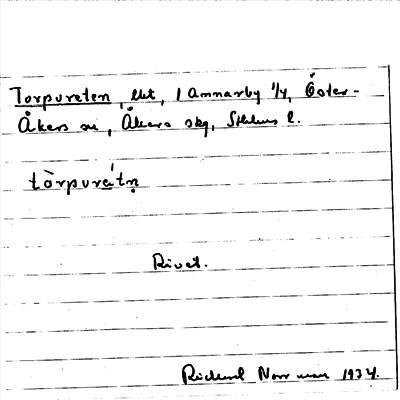 Torpureten, lht, 1 Ammarby 1/4, Öster-
Åkers sn, Åkers skg, Sthlms l.
tòrpurétṇ
Rivet.
Richard Norrman 1934.